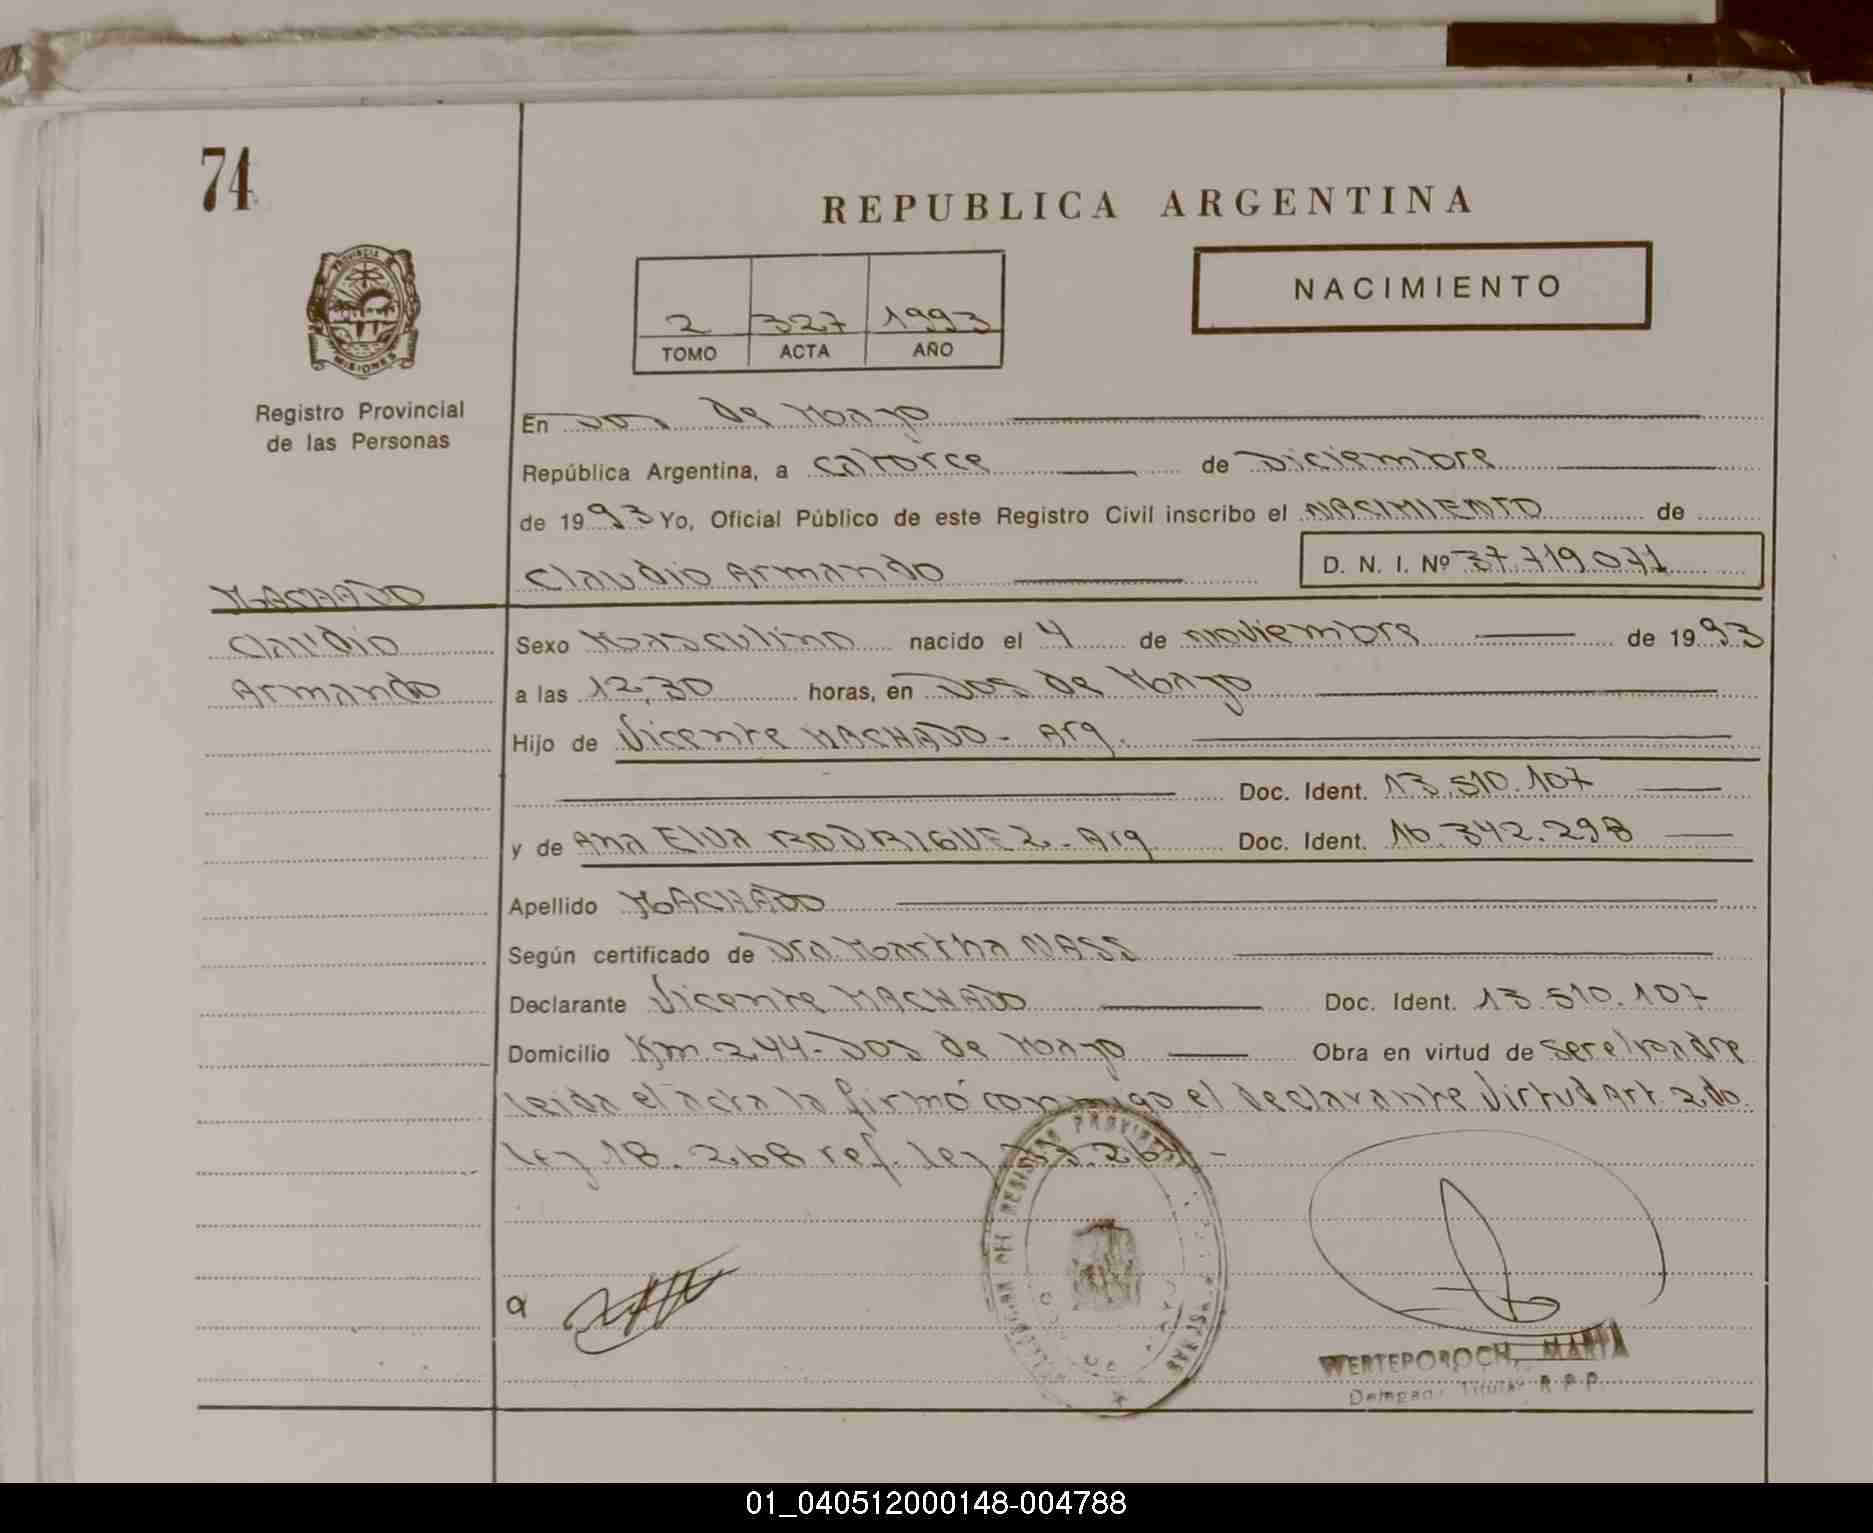 74
REPUBLICA ARGENTINA
NACIMIENTO
2 327 1993
TOMO ACTA AÑO
PROVINCIA DE MISIONES
Registro Provincial
de las Personas
En Dos de Mayo
República Argentina, a catorce de Diciembre
de 1993 Yo, Oficial Público de este Registro Civil inscribo el NACIMIENTO de
Claudio Armando D. N. I. Nº 37.719.071
MACHADO
Claudio
Armando
Sexo Masculino nacido el 4 de noviembre de 1993
a las 12,30 horas, en Dos de Mayo
Hijo de Vicente MACHADO - Arg.
Doc. Ident. 13.510.107
y de Ana Elva RODRIGUEZ - Arg Doc. Ident. 16.342.298
Apellido MACHADO
Según certificado de Dra. Martha NASS
Declarante Vicente MACHADO Doc. Ident. 13.510.107
Domicilio Km. 244 - Dos de Mayo Obra en virtud de ser el padre
leida el acta la firmó conmigo el declarante Virtud Art. 2do.
ley 18.268 ref. ley
DEL REGISTRO
a
WERTEPOROCH, MARIA
Titular R.P.P.
01_040512000148-004788